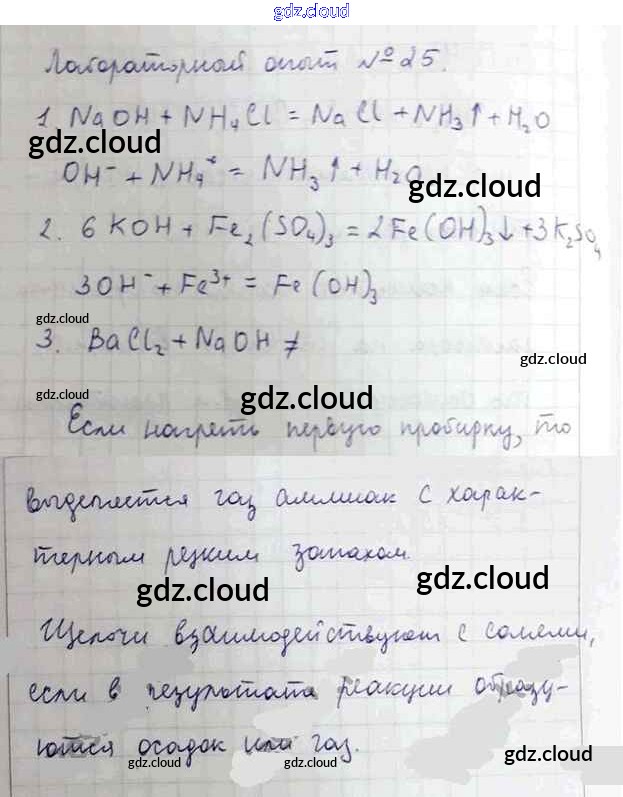 gdz.cloud
Лабораторный опыт №25.
1. NaOH + NH₄Cl = NaCl + NH₃↑ + H₂O
gdz.cloud
OH⁻ + NH₄⁺ = NH₃↑ + H₂O
gdz.cloud
2. 6KOH + Fe₂(SO₄)₃ = 2Fe(OH)₃↓ + 3K₂SO₄
3OH⁻ + Fe³⁺ = Fe(OH)₃
gdz.cloud
3. BaCl₂ + NaOH ≠
gdz.cloud
gdz.cloud
gdz.cloud
Если нагреть первую пробирку, то
выделяется газ аммиак с харак-
терным резким запахом.
gdz.cloud
gdz.cloud
Щелочи взаимодействуют с солями,
если в результата реакции образу-
ются осадок или газ.
gdz.cloud
gdz.cloud
gdz.cloud